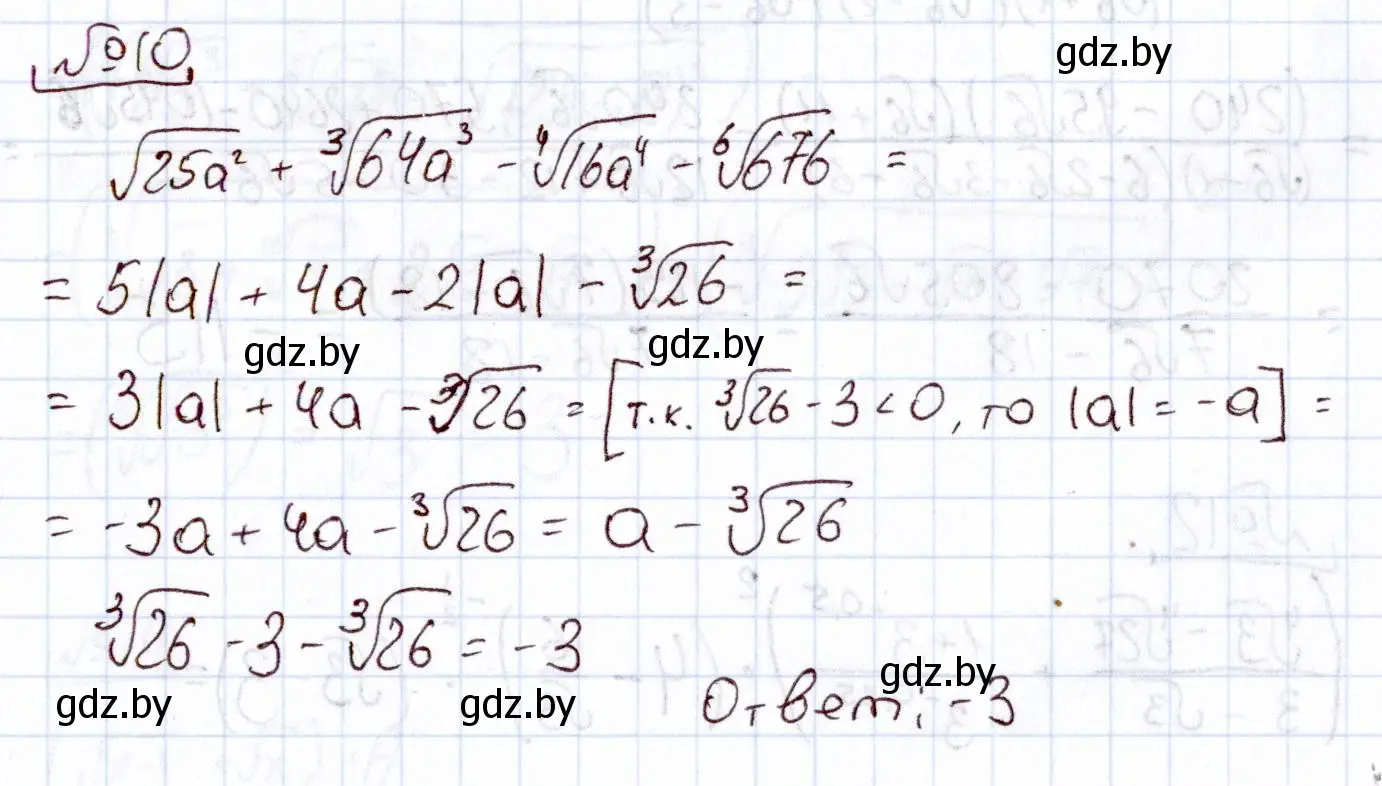 №10
gdz.by
√25a² + ∛64a³ - ∜16a⁴ - ⁶√676 =
= 5|a| + 4a - 2|a| - ∛26 =
gdz.by gdz.by
= 3|a| + 4a - ∛26 = [т.к. ∛26 - 3 < 0, то |a| = -a] =
= -3a + 4a - ∛26 = a - ∛26
∛26 - 3 - ∛26 = -3
gdz.by gdz.by gdz.by
Ответ: -3